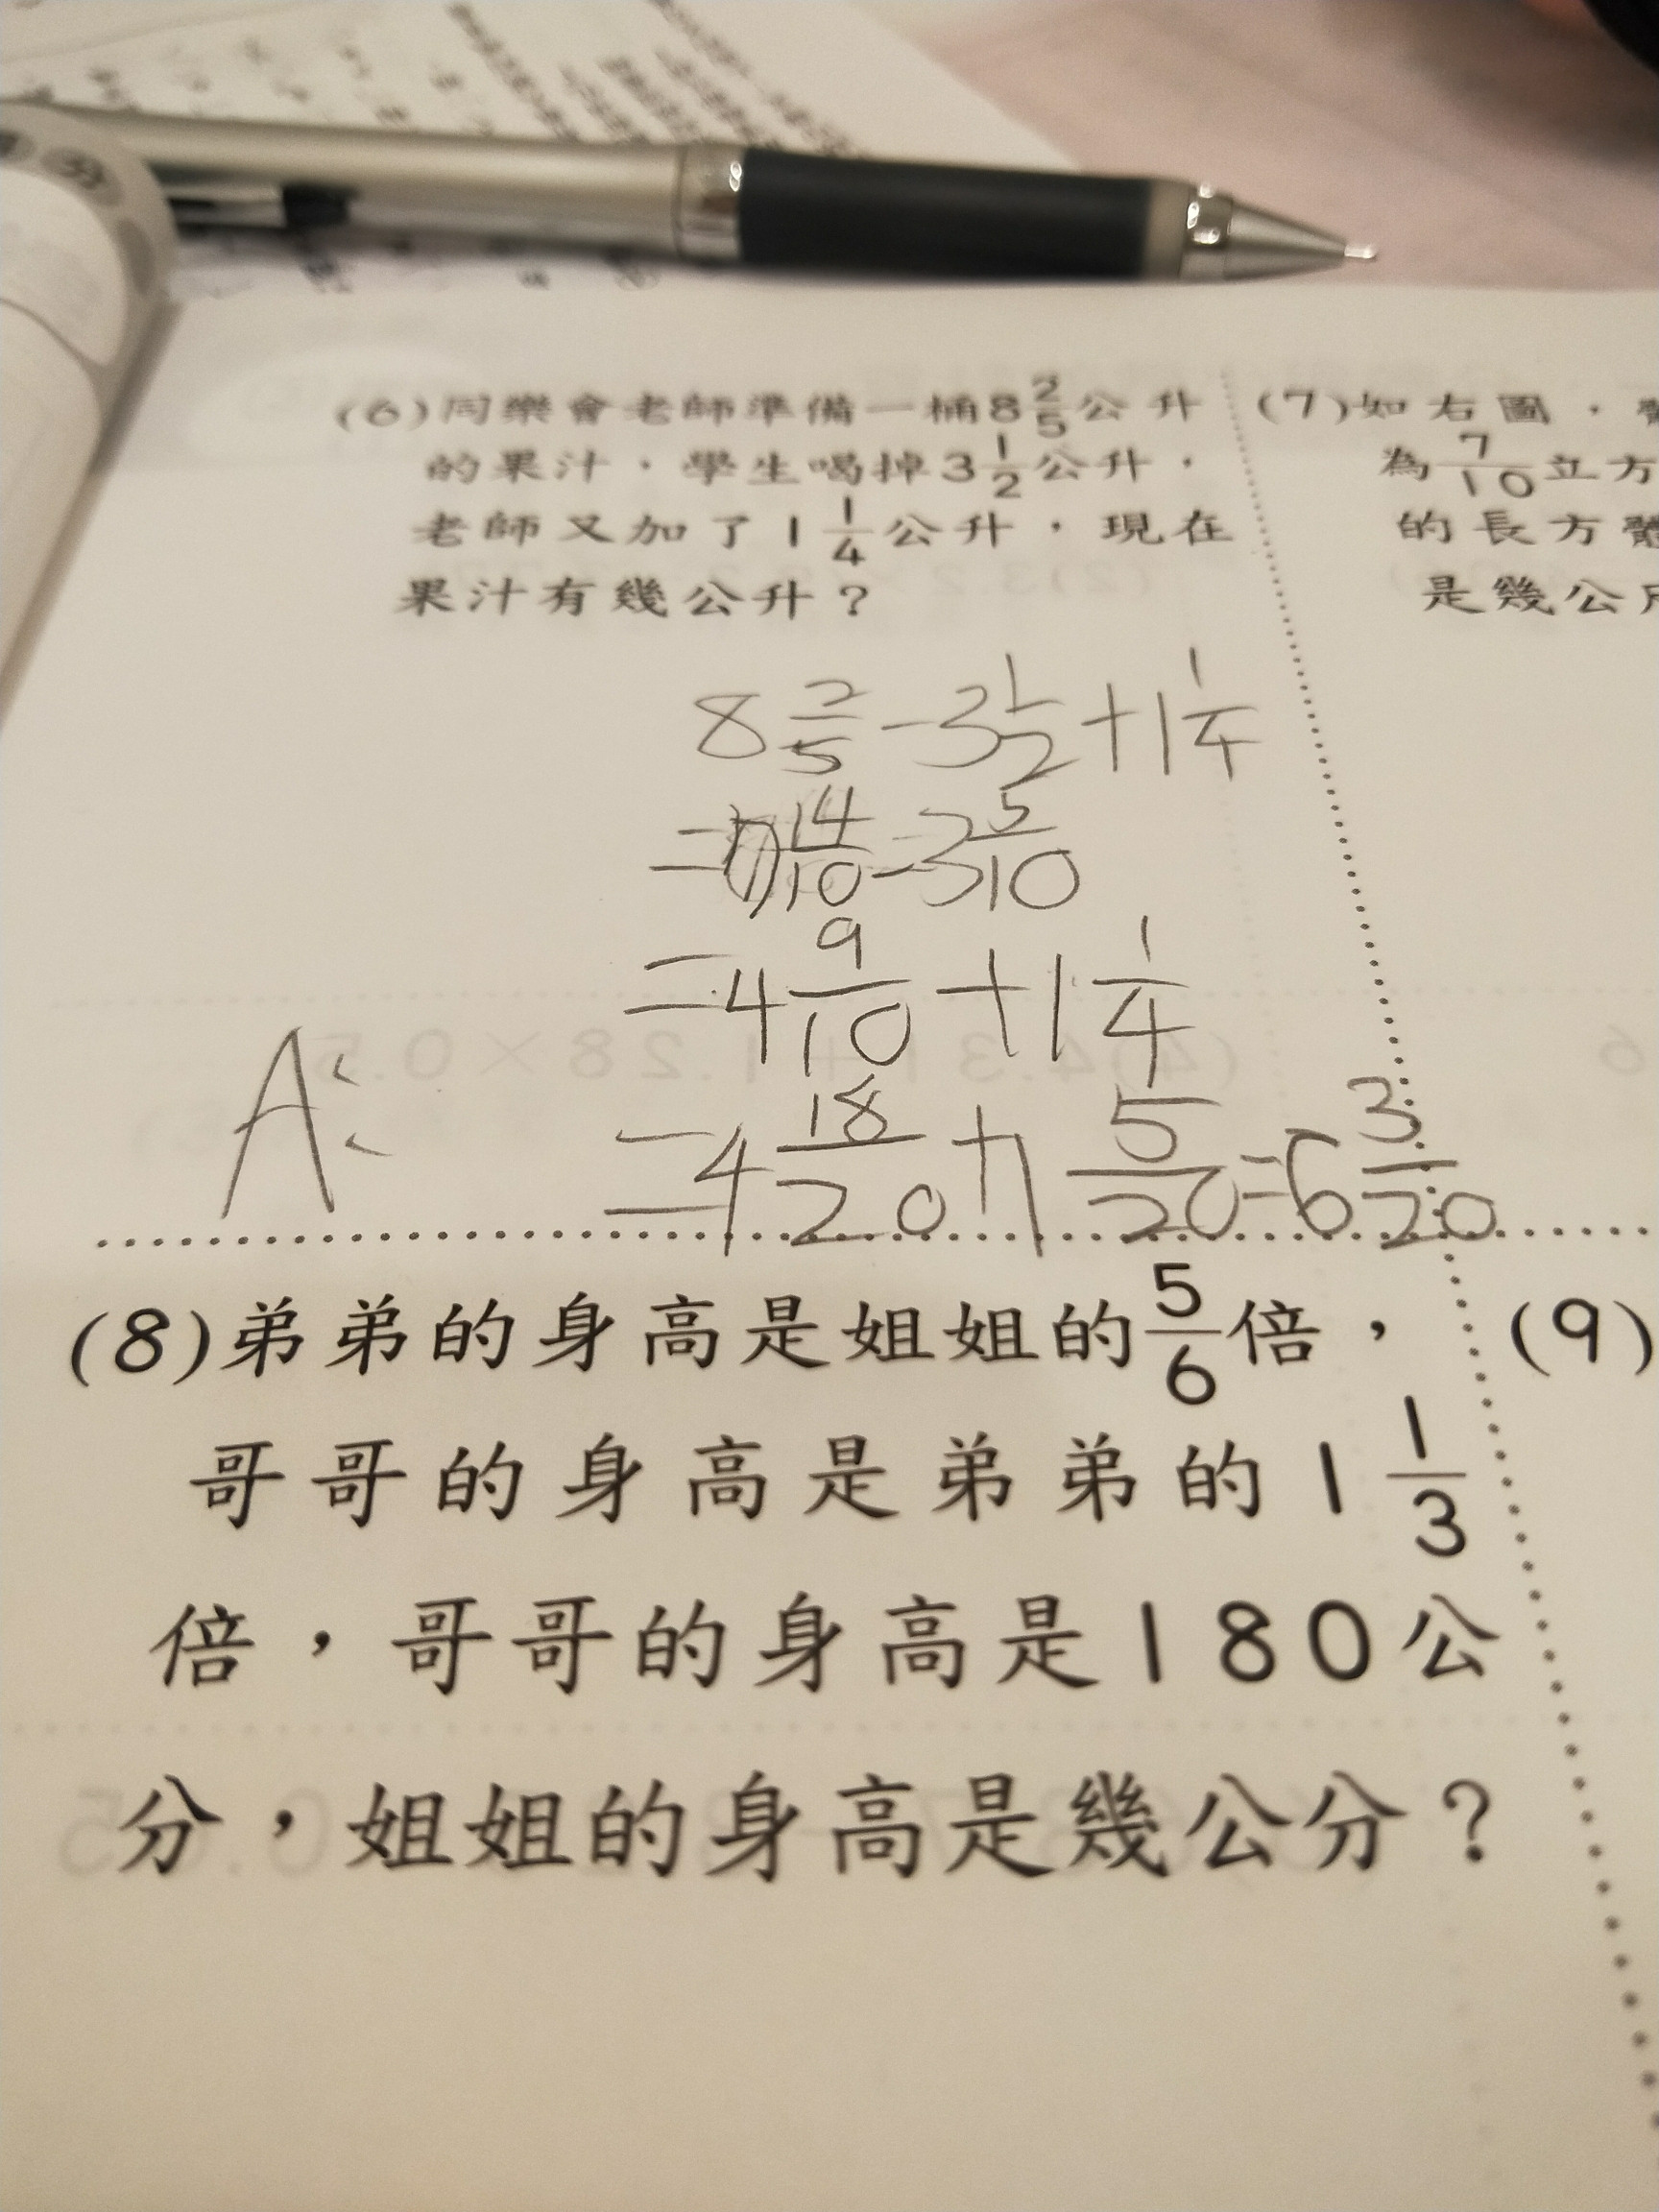 (6)同樂會老師準備一桶8 2/5公升
的果汁，學生喝掉3 1/2公升，
老師又加了1 1/4公升，現在
果汁有幾公升？
(7)如右圖，
為7/10立方
的長方體
是幾公
8 2/5 - 3 1/2 + 1 1/4
= 7 14/10 - 3 5/10
= 4 9/10 + 1 1/4
= 4 18/20 + 1 5/20 = 6 3/20
A:
(8)弟弟的身高是姐姐的5/6倍，
哥哥的身高是弟弟的1 1/3
倍，哥哥的身高是180公
分，姐姐的身高是幾公分？
(9)